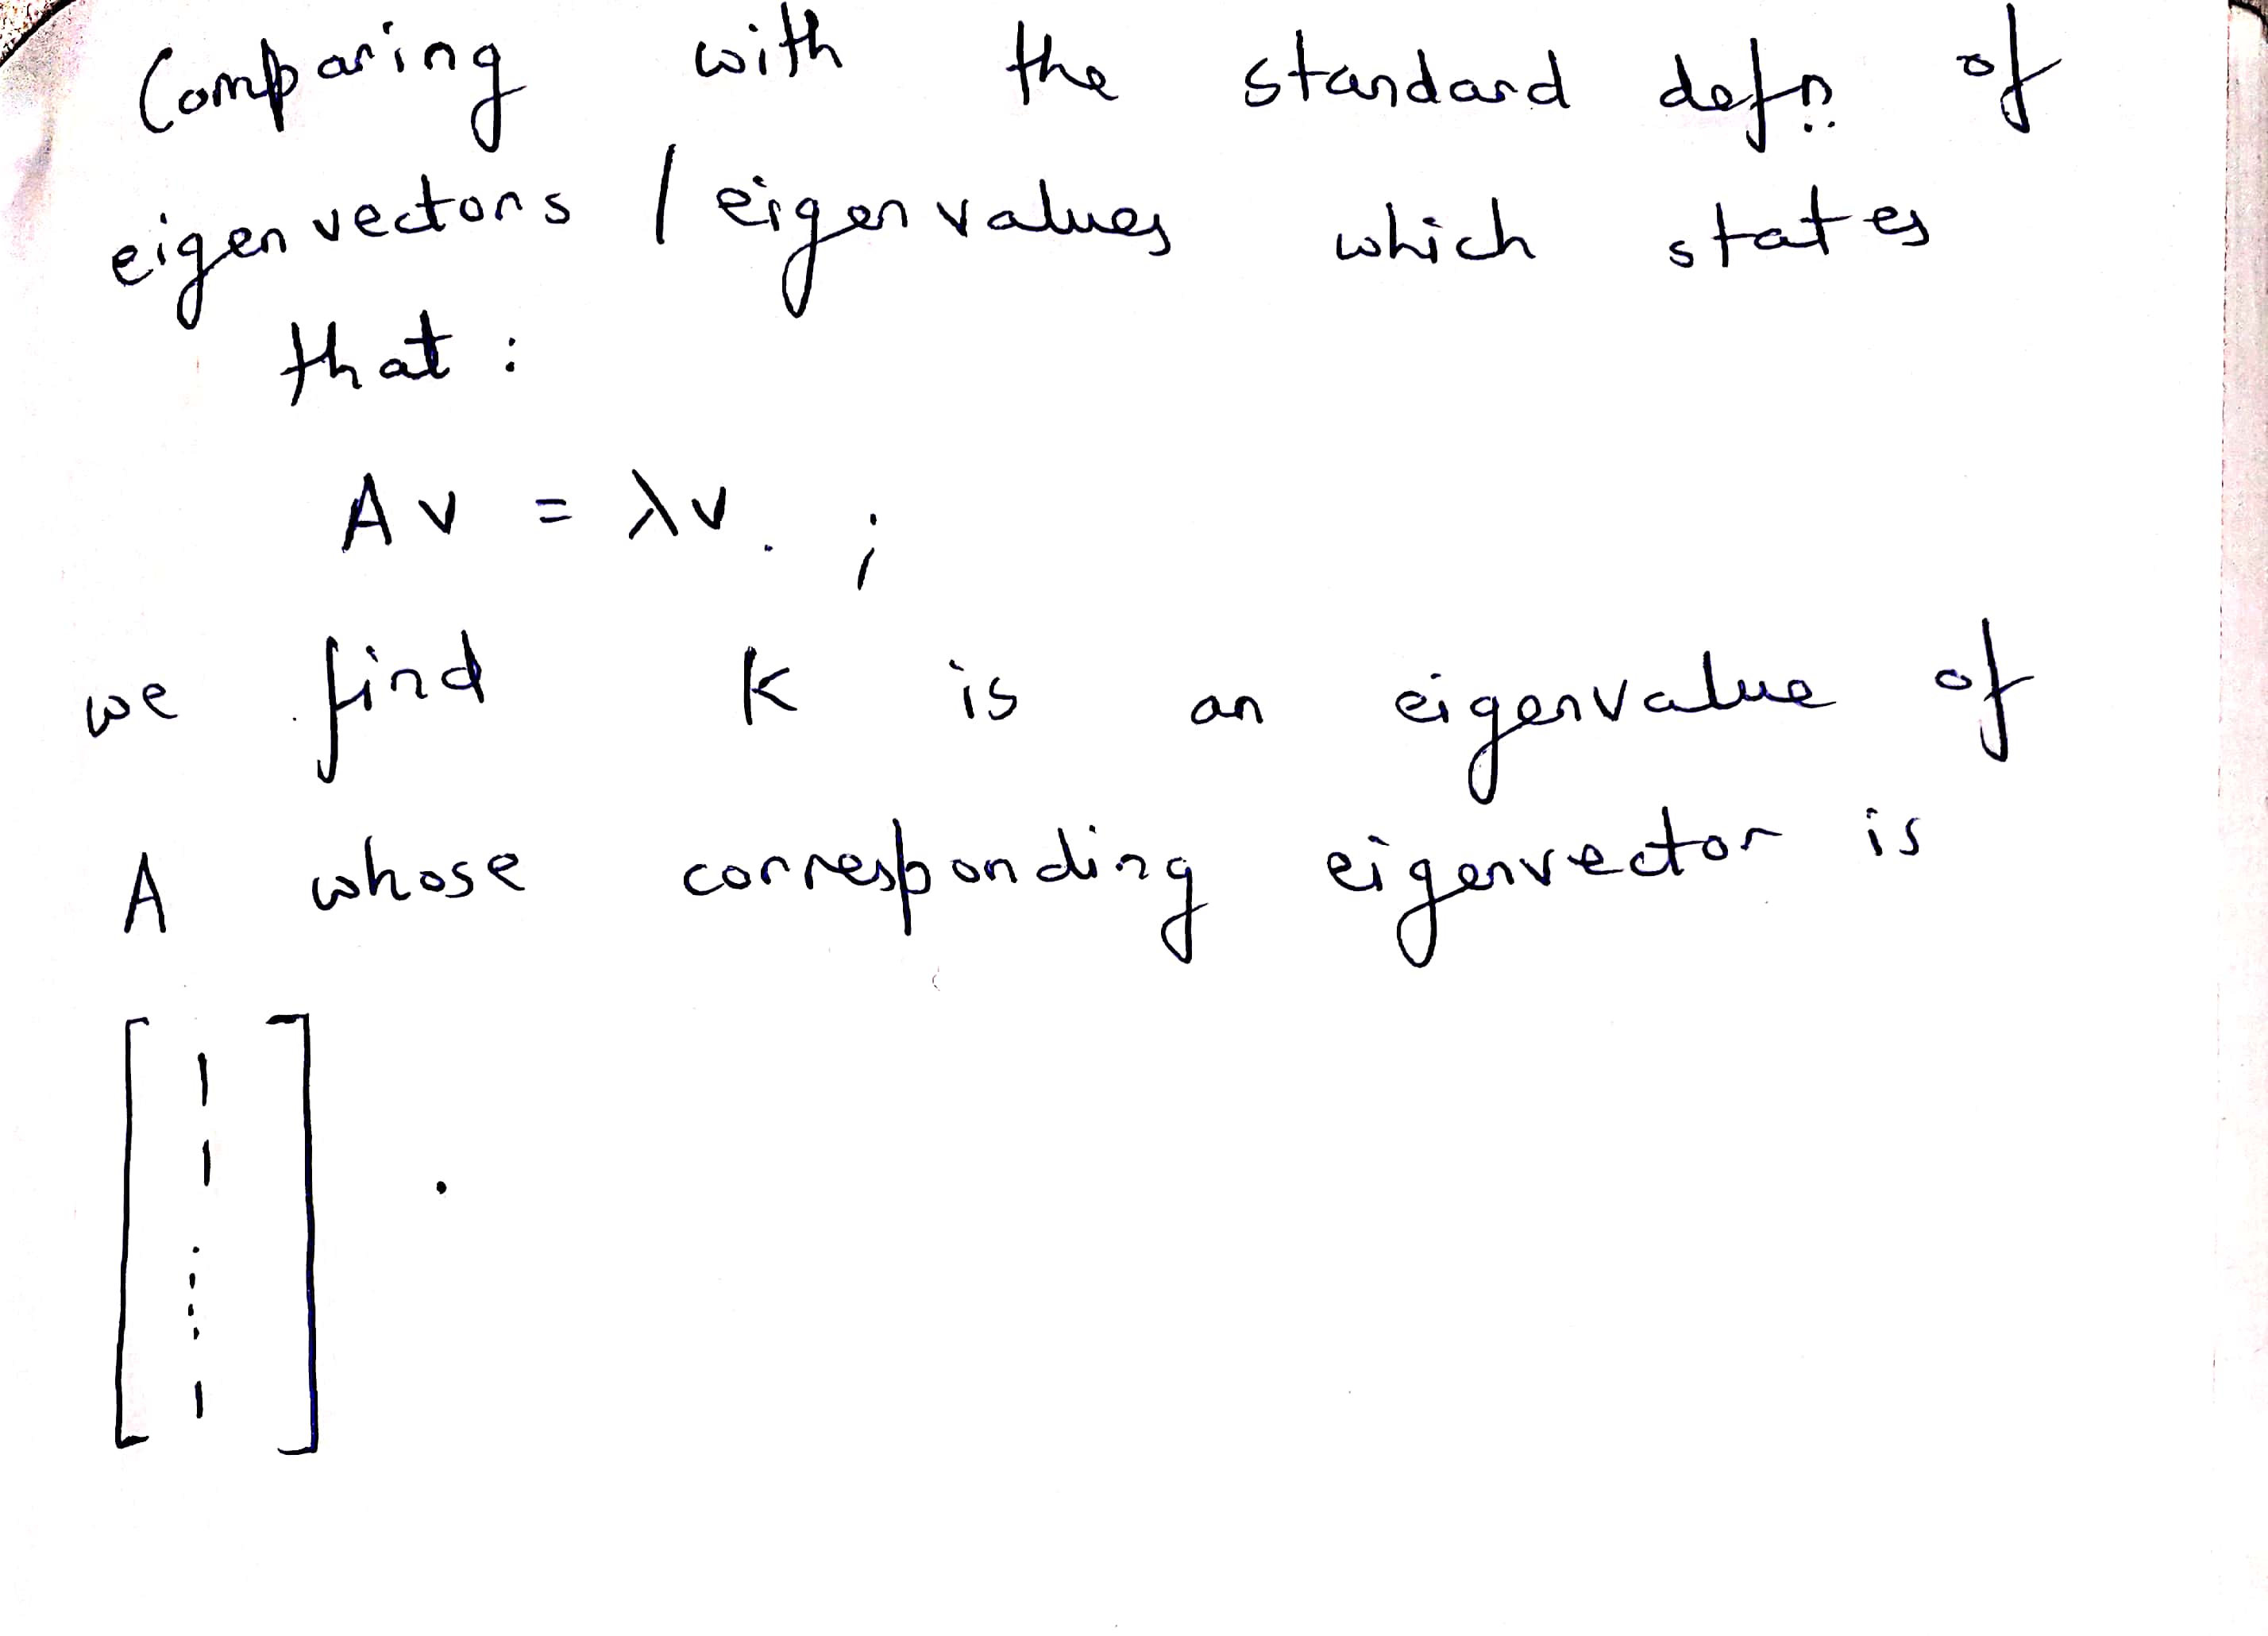 Comparing with the standard defn of
eigenvectors / eigenvalues which states
that :
Av = λv. ;
we find k is an eigenvalue of
A whose corresponding eigenvector is
[ 1
1
⋮
1 ] .